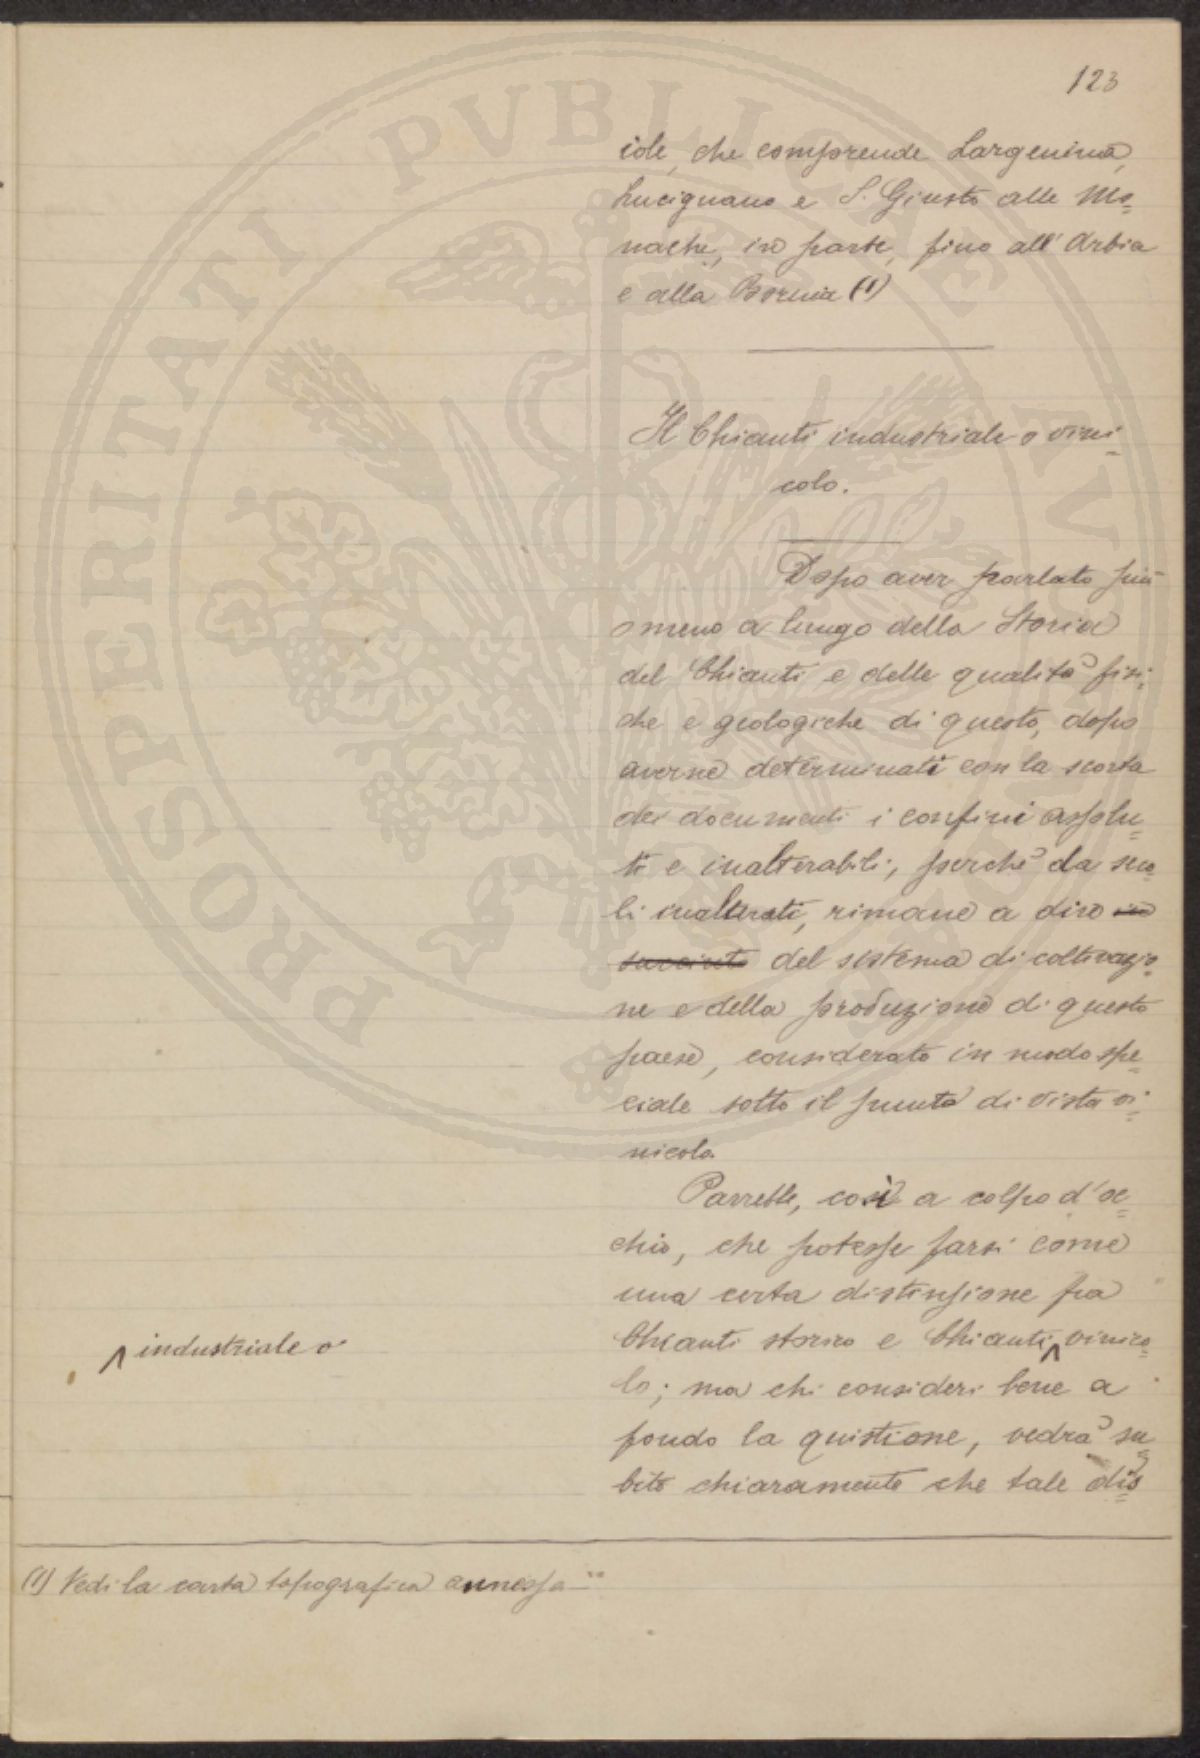 123
iole, che comprende Largenina,
Lucignano e S. Giusto alle Mo=
nache, in parte, fino all'Arbia
e alla Bornia (1)
Il Chianti industriale o vini=
colo.
Dopo aver parlato più
o meno a lungo della Storia
del Chianti e delle qualità fisi=
che e geologiche di questo, dopo
averne determinati con la scorta
dei documenti i confini assolu=
ti e inalterabili, perchè da seco=
li inalterati, rimane a dire in
succinto del sistema di coltivazio=
ne e della produzione di questo
paese, considerato in modo spe=
ciale sotto il punto di vista vi=
nicolo.
Parrebbe, così a colpo d'oc=
chio, che potesse farsi come
una certa distinzione fra
Chianti storico e Chianti ^ vinico=
^ industriale o
lo; ma chi consideri bene a
fondo la quistione, vedrà su=
bito chiaramente che tale dis=
(1) Vedi la carta topografica annessa
PROSPERITATI PVBLICAE AVGENDAE